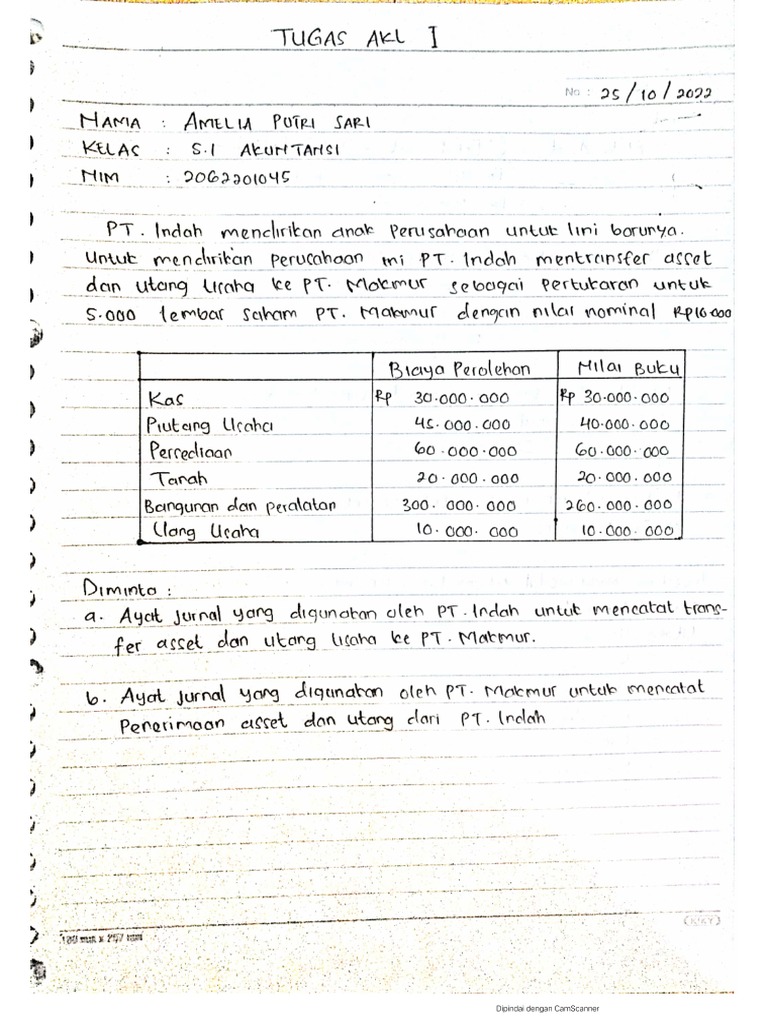 TUGAS AKL I
No : 25/10/2022
NAMA : AMELIA PUTRI SARI
KELAS : S.1 AKUNTANSI
NIM : 2062201045
PT. Indah mendirikan anak perusahaan untuk lini barunya.
Untuk mendirikan perusahaan ini PT. Indah mentransfer asset
dan utang usaha ke PT. Makmur sebagai pertukaran untuk
5.000 lembar saham PT. Makmur dengan nilai nominal Rp10.000
Biaya Perolehan Nilai Buku
Kas Rp 30.000.000 Rp 30.000.000
Piutang Usaha 45.000.000 40.000.000
Persediaan 60.000.000 60.000.000
Tanah 20.000.000 20.000.000
Bangunan dan peralatan 300.000.000 260.000.000
Utang Usaha 10.000.000 10.000.000
Diminta :
a. Ayat jurnal yang digunakan oleh PT. Indah untuk mencatat trans-
fer asset dan utang usaha ke PT. Makmur.
b. Ayat jurnal yang digunakan oleh PT. Makmur untuk mencatat
Penerimaan asset dan utang dari PT. Indah
Dipindai dengan CamScanner